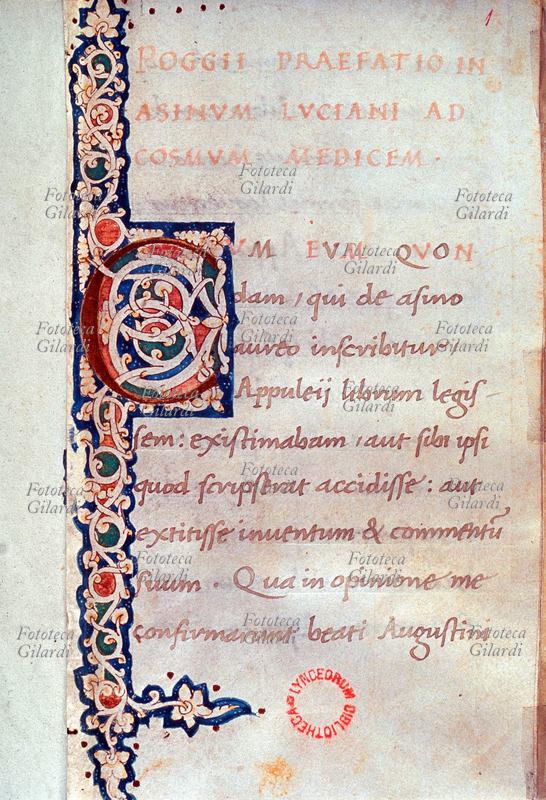 POGGII PRAEFATIO IN
ASINVM LVCIANI AD
COSMVM MEDICEM ·
CVM EVM QVON
dam / qui de asino
aureo inscribitur /
Appuleij librum legis-
sem: existimabam / aut sibi ipsi
quod scripserat accidisse: aut
extitisse inuentum & commentũ
suum . Qua in opinione me
confirmarunt beati Augustini
LYNCEORUM BIBLIOTHECA
1
Fototeca Gilardi
Fototeca Gilardi
Fototeca Gilardi
Fototeca Gilardi
Fototeca Gilardi
Fototeca Gilardi
Fototeca Gilardi
Fototeca Gilardi
Fototeca Gilardi
Fototeca Gilardi
Fototeca Gilardi
Fototeca Gilardi
Fototeca Gilardi
Fototeca Gilardi
Fototeca Gilardi
Fototeca Gilardi
Fototeca Gilardi
Fototeca Gilardi